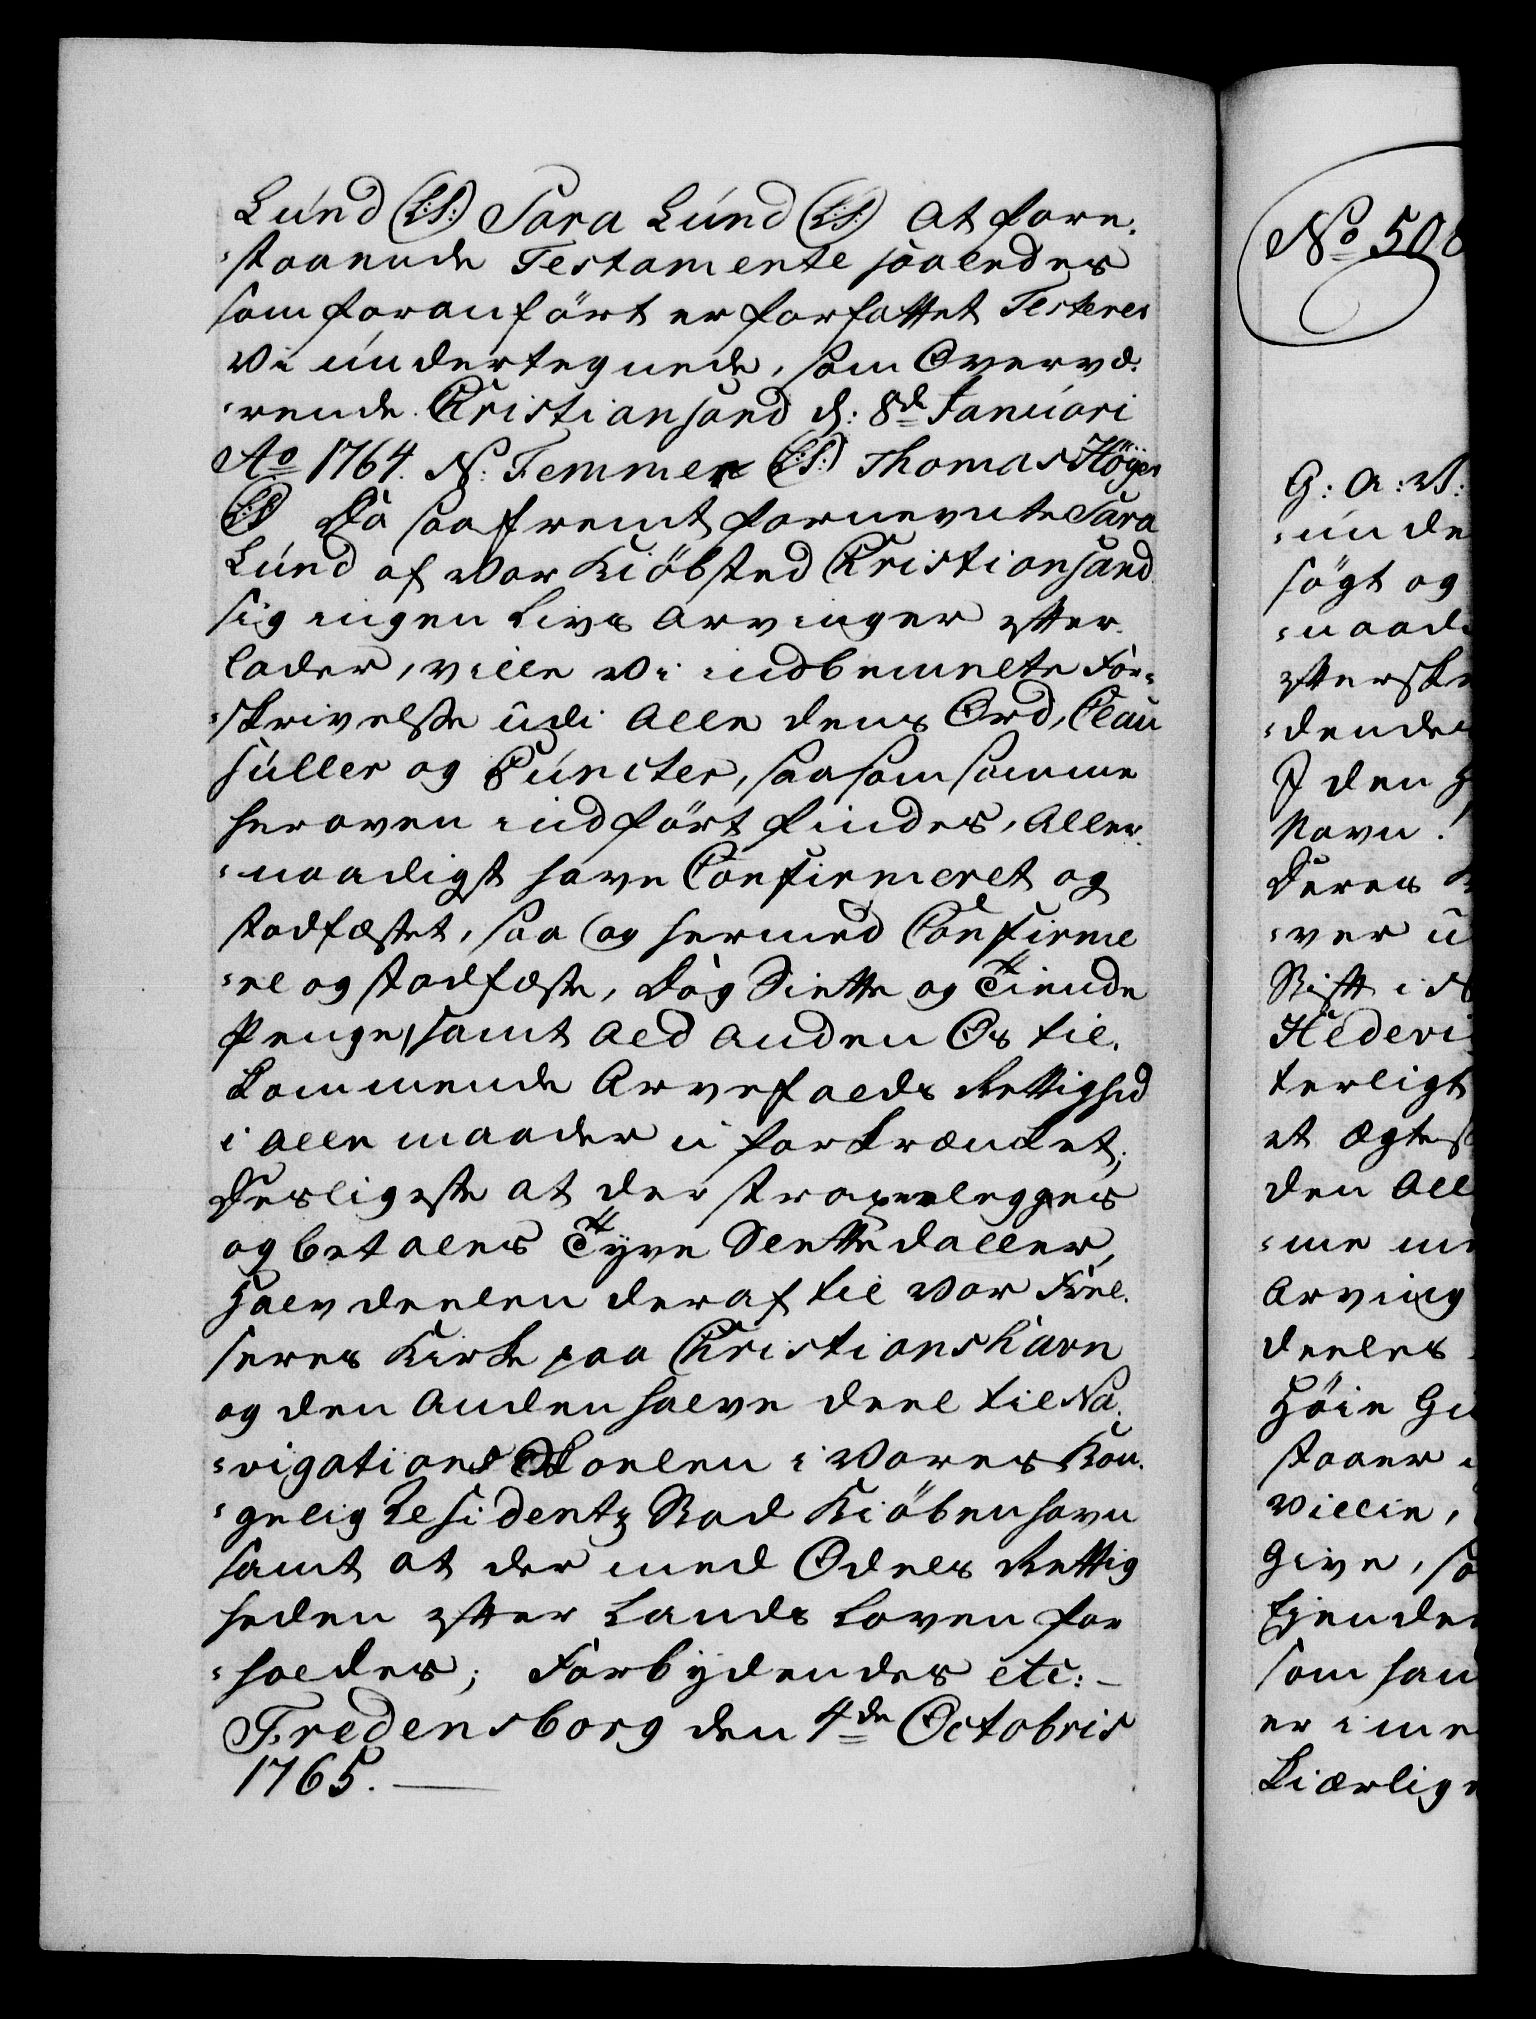 Lund (L:S:) Sara Lund (L:S:) At fore¬
staaende Testamente saaledes
som foranført er forfattet Testeres
Vi undertegnede, som Overvæ¬
rende. Christiansand d: 8de Januari
Ao 1764. N: Femmer (L:S:) Thomas Höyer
(L:S:) Da saafremt fornevnte Sara
Lund af Vor Kiöbsted Christiansand
sig ingen Livs Arvinger efter¬
lader, ville Vi indbemelte For¬
skrivelse udi Alle dens Ord, Clau
suller og Puncter, saasom samme
heroven indført findes, Aller¬
naadigst have Confirmeret og
stadfæstet, saa og hermed Confirme
re og stadfæste, Dog Siette og Tiende
Penge, samt Ald Anden Os til¬
kommende Arvefalds Rettighed
i Alle maader u forkrænket;
Desligeste at der strax erlegges
og betales Tyve Slettedaller,
Halvdeelen deraf til Vor Frel¬
seres Kirke paa Christianshavn
og den Anden halve deel til Na¬
vigations Skoelen i Vores Kon¬
gelig Residentz Stad Kiöbenhavn
samt at der med Odels Rettig
heden efter Lands Loven for
holdes; Forbydendes etc: –
Fredensborg den 4de Octobris
1765. —
No 508
G: A: V:
unde
søgt og
naad
efterske
dendes
I den H
Navn.
Deres
ver u
Stift i N
Hedevi
terligt
et Ægtes
den All
me me
Arving
deeles
Høie Gu
staaer
Villie,
Give, sa
Ejende
som han
er i me
Kiærlig